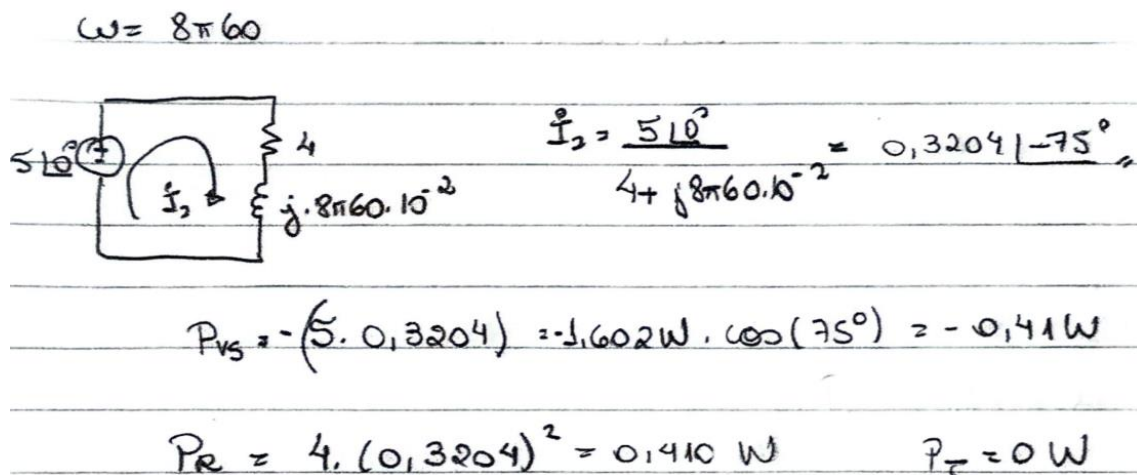 ω = 8π60
5∠0°
4
İ₂
j.8π60.10⁻²
İ₂ = 5∠0° / 4 + j8π60.10⁻² = 0,3204∠-75°
Pvs = -(5. 0,3204) = -1,602W. cos(75°) = -0,41W
PR = 4. (0,3204)² = 0,410 W
= 0 W